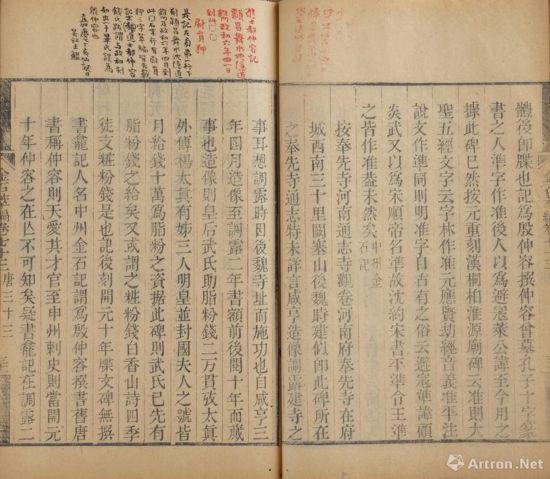 體後卽牒也記爲殷仲容撰仲容曾墓孔子十字篆
書之人準字作准後人以爲避寇萊公諱至今用之
據此碑已然按元重刻漢桐柏淮源廟碑云准則大
聖五經文字云字林作准元應賢劫經音義准平注
說文作準同則明准字自古有之俗云避寇準諱顧
炎武又以爲宋順帝名準故沈約宋書平準令王準
之皆作准葢未然矣 中州金石記
按奉先寺河南通志寺觀卷河南府奉先寺在府
城西南三十里闕塞山後魏時建但卽此碑所在
之奉先寺通志特未詳言咸亨造像調露建寺之
進士都仲容記
事耳想調露時因後魏寺址而施功也自咸亨三
年四月造像至調露二年書額前後閱十年而蕆
事也造像則皇后武氏助脂粉錢二萬貫攷太眞
外傳楊太眞有姊三人明皇並封國夫人之號皆
月給錢十萬爲脂粉之資據此碑則武氏已先有
脂粉錢之給矣又或謂之粧粉錢白香山詩四季
徒支粧粉錢是也記後刻開元十年牒文碑無撰
書龕記人名中州金石記謂爲殷仲容撰書舊唐
書稱仲容則天愛其才官至申州刺史則當開元
十年仲容之在亾不可知矣疑書龕記在調露二
金石萃編卷七十三 唐三十三
Artron.Net